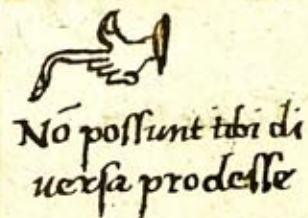 Nō poſſunt tibi di
uerſa prodeſſe